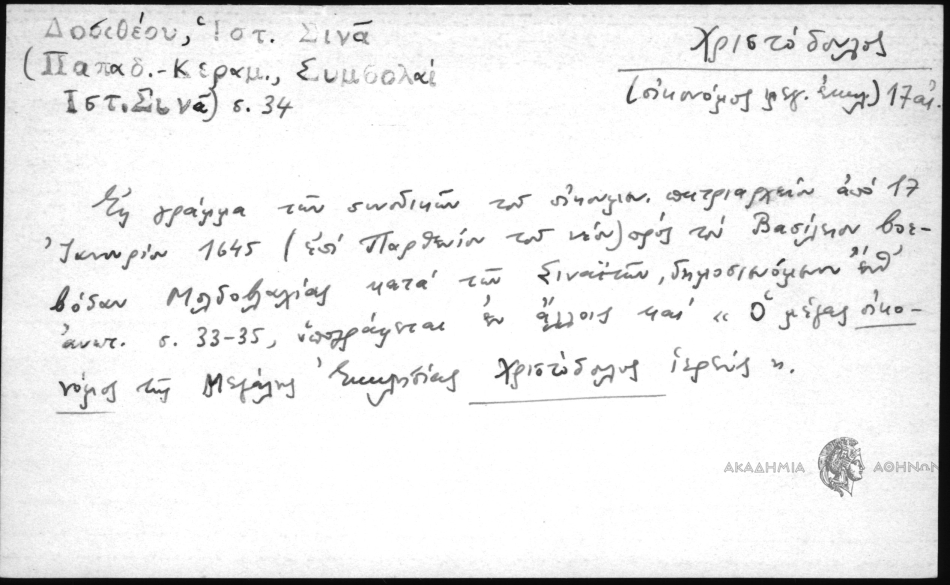 Δοσιθέου, Ἱστ. Σινᾶ
(Παπαδ.-Κεραμ., Συμβολαὶ
Ἱστ. Σινᾶ) σ. 34
Χριστόδουλος
(οἰκονόμος μεγ. ἐκκλ.) 17 αἰ.
Εἰς γράμμα τῶν συνοδικῶν τοῦ οἰκουμεν. πατριαρχείου ἀπό 17
Ἰανουαρίου 1645 (ἐπί Παρθενίου τοῦ νέου) πρός τόν Βασίλειον βοε-
βόδαν Μολδοβλαχίας κατά τῶν Σιναϊτῶν, δημοσιευόμενον ἔνθ'
ἀνωτ. σ. 33-35, ὑπογράφεται ἐν ἄλλοις καί « Ὁ μέγας οἰκο-
νόμος τῆς Μεγάλης Ἐκκλησίας Χριστόδουλος ἱερεύς ».
ΑΚΑΔΗΜΙΑ ΑΘΗΝΩΝ